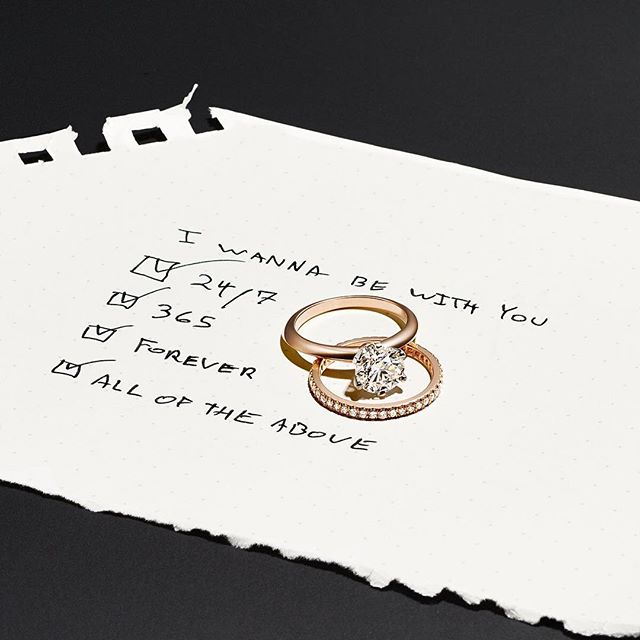 I WANNA BE WITH YOU
24/7
365
FOREVER
ALL OF THE ABOVE